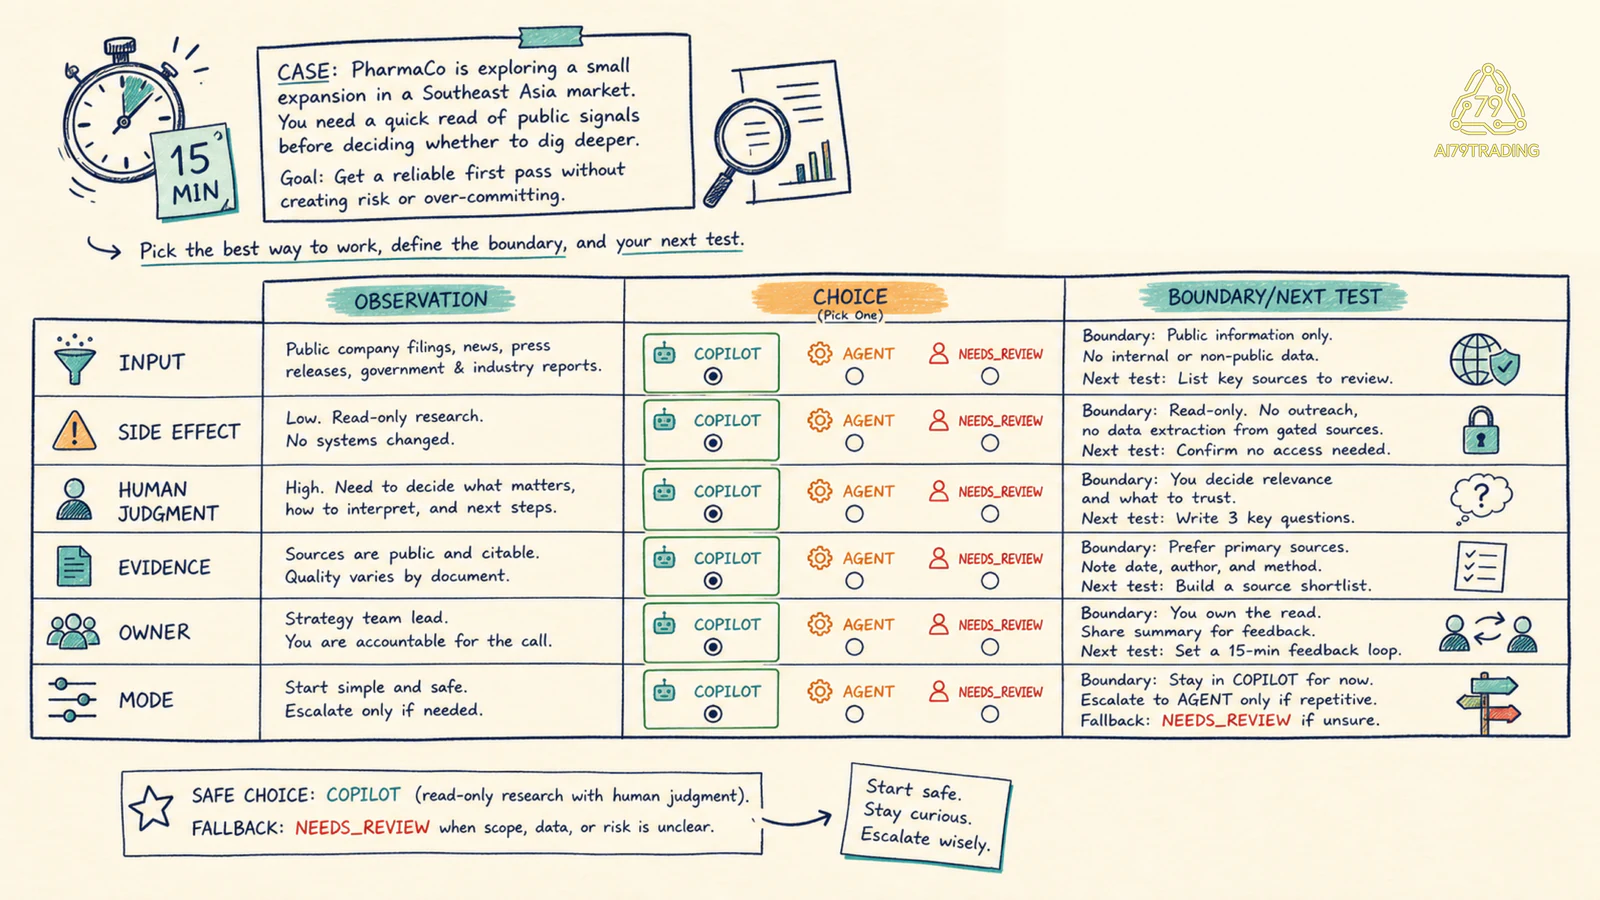 15
MIN
CASE: PharmaCo is exploring a small
expansion in a Southeast Asia market.
You need a quick read of public signals
before deciding whether to dig deeper.
Goal: Get a reliable first pass without
creating risk or over-committing.
79
AI79TRADING
Pick the best way to work, define the boundary, and your next test.
OBSERVATION
CHOICE
(Pick One)
BOUNDARY/NEXT TEST
INPUT
Public company filings, news, press
releases, government & industry reports.
COPILOT
AGENT
NEEDS_REVIEW
Boundary: Public information only.
No internal or non-public data.
Next test: List key sources to review.
SIDE EFFECT
Low. Read-only research.
No systems changed.
COPILOT
AGENT
NEEDS_REVIEW
Boundary: Read-only. No outreach,
no data extraction from gated sources.
Next test: Confirm no access needed.
HUMAN
JUDGMENT
High. Need to decide what matters,
how to interpret, and next steps.
COPILOT
AGENT
NEEDS_REVIEW
Boundary: You decide relevance
and what to trust.
Next test: Write 3 key questions.
?
EVIDENCE
Sources are public and citable.
Quality varies by document.
COPILOT
AGENT
NEEDS_REVIEW
Boundary: Prefer primary sources.
Note date, author, and method.
Next test: Build a source shortlist.
OWNER
Strategy team lead.
You are accountable for the call.
COPILOT
AGENT
NEEDS_REVIEW
Boundary: You own the read.
Share summary for feedback.
Next test: Set a 15-min feedback loop.
MODE
Start simple and safe.
Escalate only if needed.
COPILOT
AGENT
NEEDS_REVIEW
Boundary: Stay in COPILOT for now.
Escalate to AGENT only if repetitive.
Fallback: NEEDS_REVIEW if unsure.
SAFE CHOICE: COPILOT (read-only research with human judgment).
FALLBACK: NEEDS_REVIEW when scope, data, or risk is unclear.
Start safe.
Stay curious.
Escalate wisely.